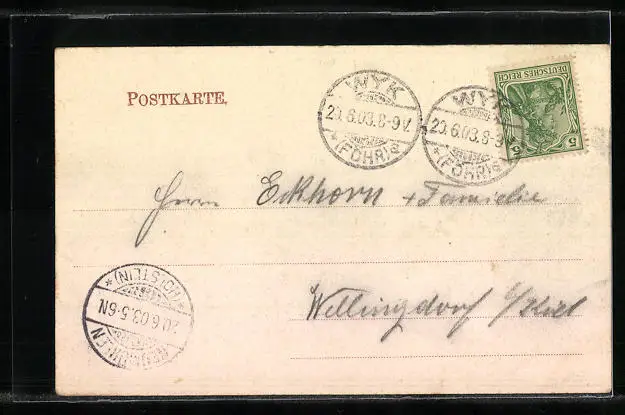 POSTKARTE.
WYK
20.6.03.8-9V.
*(FÖHR)a
WYK
20.6.03.8-9
*(FÖHR)a
DEUTSCHES REICH
5 5
Herrn Eckhorn + Familie
Wellingdorf b/Kiel
*(HOLSTEIN)*
20.6.03.5-6N